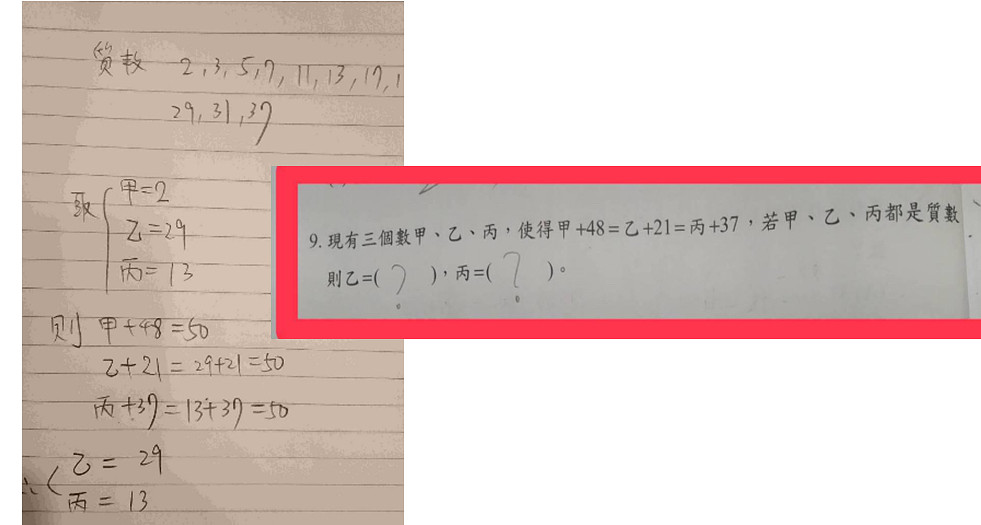 质数 2,3,5,7,11,13,17,1
29,31,37
取 甲=2
乙=29
丙=13
则 甲+48=50
乙+21=29+21=50
丙+37=13+37=50
∴ 乙=29
丙=13
9.現有三個數甲、乙、丙,使得甲+48=乙+21=丙+37,若甲、乙、丙都是質數
則乙=( ? ),丙=( ? )。